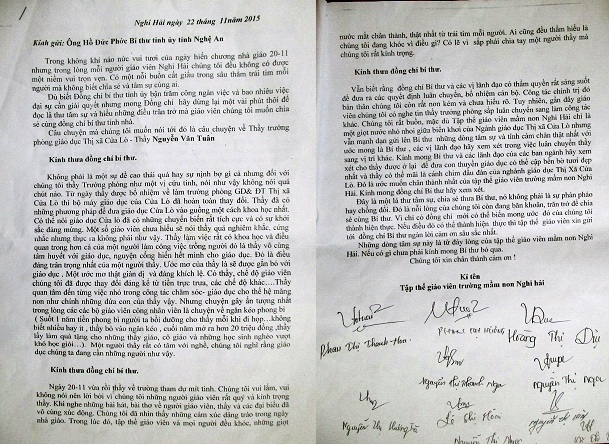 Nghi Hải ngày 22 tháng 11năm 2015
Kính gửi: Ông Hồ Đức Phớc Bí thư tỉnh ủy tỉnh Nghệ An
Trong không khí náo nức vui tươi của ngày hiến chương nhà giáo 20-11
nhưng trong lòng mỗi người giáo viên Nghi Hải chúng tôi đều không có được
một niềm vui trọn vẹn. Có một nỗi buồn cất giấu trong sâu thẳm trái tim mỗi
người mà không biết chia sẻ và tâm sự cùng ai.
Dù biết Đồng chí bí thư tỉnh ủy bận trăm công ngàn việc và bao nhiêu việc
đại sự cần giải quyết nhưng mong Đồng chí hãy dừng lại một vài phút thôi để
đọc lá thư tâm sự và hiểu những điều trăn trở mà giáo viên chúng tôi muốn chia
sẻ cùng đồng chí bí thư tỉnh nhà.
Câu chuyện mà chúng tôi muốn nói tới đó là câu chuyện về Thầy trưởng
phòng giáo dục Thị xã Cửa Lò - Thầy Nguyễn Văn Tuấn
Kính thưa đồng chí bí thư.
Không phải là một sự đề cao thái quá hay sự nịnh bợ gì cả nhưng đối với
chúng tôi thầy Trưởng phòng như một vị cứu tinh, nói như vậy không nói quá
chút nào. Từ ngày thầy được bổ nhiệm về làm trưởng phòng GD& ĐT Thị xã
Cửa Lò thì bộ máy giáo dục của Cửa Lò đã hoàn toàn thay đổi. Thầy đã có
những phương pháp để đưa giáo dục Cửa Lò vào guồng một cách khoa học nhất.
Có thể nói giáo dục Cửa lò đã có những chuyển biến rất tích cực và có sự khởi
sắc đáng mừng. Một số giáo viên chưa hiểu sẽ nói thầy quá nghiêm khắc, cứng
nhắc nhưng thực ra không phải như vậy. Thầy làm việc rất có khoa học và điều
quan trọng hơn cả của một người làm công việc trồng người đó là thầy vô cùng
tâm huyết với giáo dục, nguyện cống hiến hết mình cho giáo dục. Đó là điều
đáng trân trọng nhất của một người thầy. Ước mơ của thầy là sẽ được gắn bó với
giáo dục . Một ước mơ thật giản dị và đáng khích lệ. Có thầy, chế độ giáo viên
chúng tôi đã được thay đổi đáng kể từ tiền trực trưa, các chế độ khác….Thầy
quan tâm đến từng việc nhỏ trong công tác chăm sóc- giáo dục cho thế hệ măng
non như chính những đứa con của thầy vậy. Nhưng chuyện gây ấn tượng nhất
trong lòng các cán bộ giáo viên công nhân viên là chuyện về ngăn kéo phong bì
( Suốt 1 năm tiền phong bì người ta bồi dưỡng cho thầy mỗi khi đi họp…không
biết nhiều hay ít , thầy bỏ vào ngăn kéo , cuối năm mở ra hơn 20 triệu đồng ,thầy
lấy làm quà tặng cho những thầy giáo, cô giáo và những học sinh nghèo vượt
khó học giỏi…). Một người thầy rất có tâm với nghề, chúng tôi nghĩ rằng giáo
dục chúng ta đang cần những người như vậy.
Kính thưa đồng chí bí thư.
Ngày 20-11 vừa rồi thầy về trường tham dự mít tinh. Chúng tôi vui lắm, vui
không nói nên lời bởi vì chúng tôi những người giáo viên rất quý và kính trọng
thầy. Khi nghe những bài hát, bài thơ về người giáo viên, thầy và các đại biểu đã
vô cùng xúc động. Chúng tôi đã nhìn thấy những cảm xúc dâng trào trong ngày
nhà giáo. Trong lúc đó, tập thể giáo viên và mọi người đều khóc, những giọt
nước mắt chân thành, thật nhất từ trái tim mỗi người. Ai cũng đều thầm hiểu là
chúng tôi đang khóc vì điều gì? Có lẽ vì sắp phải chia tay một người thầy mà
chúng tôi rất kính trọng.
Kính thưa đồng chí bí thư.
Vẫn biết rằng đồng chí Bí thư và các vị lãnh đạo có thẩm quyền rất sáng suốt
để đưa ra các quyết định luân chuyển, bổ nhiệm cán bộ. Công tác chính trị do
bản thân chúng tôi còn rất non kém và chưa hiểu rõ. Tuy nhiên, gần đây giáo
viên chúng tôi có nghe tin thầy trưởng phòng sắp luân chuyển sang làm công tác
khác. Chúng tôi rất buồn, mặc dù Tập thể giáo viên mầm non Nghi Hải chỉ là
một giọt nước nhỏ nhoi giữa biển khơi của Ngành giáo dục Thị xã Cửa Lò nhưng
vẫn mạnh dạn gửi lên Bí thư những dòng tâm sự và tình cảm chân thật nhất với
ước mong là Bí thư , các vị lãnh đạo hãy xem xét trong việc luân chuyển thầy
sang vị trí khác. Kính mong Bí thư và các lãnh đạo của các ban ngành hãy xem
xét cho thầy được ở lại để đưa con thuyền giáo dục có thể cập bến bờ tươi đẹp
nhất và thầy có thể mãi là cánh chim đầu đàn của ngành giáo dục Thị xã Cửa Lò.
Đó là ước muốn chân thành nhất của tập thể giáo viên trường mầm non Nghi
Hải. Kính mong đồng chí Bí thư hãy xem xét.
Đây là một lá thư tâm sự, chia sẻ thưa Bí thư, nó không phải là sự phản pháo
hay chống đối. Đó là nỗi lòng của chúng tôi còn đang băn khoăn, trăn trở để chia
sẻ cùng Bí thư. Vì chỉ có đồng chí mới có thể biến mong ước đó của chúng tôi
thành hiện thực. Nếu điều đó có thể thành hiện thực thì tập thể giáo viên xin gửi
tới đồng chí Bí thư ngàn lời cảm ơn sâu sắc nhất.
Những dòng tâm sự này là từ đáy lòng của tập thể giáo viên mầm non Nghi
Hải. Nếu có gì chưa phải kính mong Bí thư bỏ qua.
Chúng tôi xin chân thành cảm ơn !
Kí tên
Tập thể giáo viên trường mầm non Nghi hải
Phan Thị Thanh Hoa
Hoàng Thị Dịu
Nguyễn Thị Thanh Nga
Nguyễn Thị Nga
Lê Thị Hoài